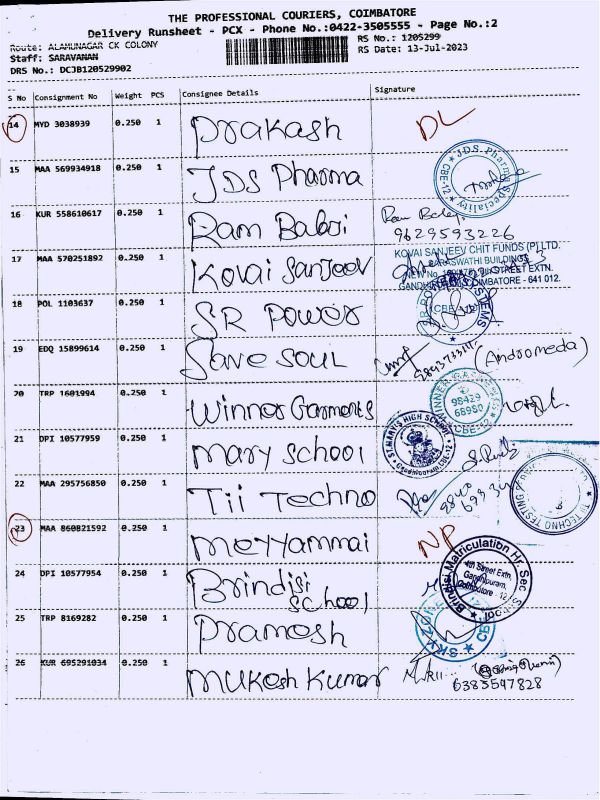 THE PROFESSIONAL COURIERS, COIMBATORE
Delivery Runsheet - PCX - Phone No.:0422-3505555 - Page No.:2
Route: ALAMUNAGAR CK COLONY
RS No.: 1205299
Staff: SARAVANAN
RS Date: 13-Jul-2023
DRS No.: DCJB120529902
S No Consignment No Weight PCS Consignee Details Signature
14 MYD 3038939 0.250 1 Prakash DL
15 MAA 569934918 0.250 1 JDS Pharma
J.D.S. Pharma Speciality CBE-12
16 KUR 558610617 0.250 1 Ram Balaji
9629593226
17 MAA 570251892 0.250 1 Kovai Sanjeev
KOVAI SANJEEV CHIT FUNDS (P) LTD.
SARASWATHI BUILDING
STREET EXTN.
COIMBATORE - 641 012.
18 POL 1103637 0.250 1 SR Power
SYSTEMS CBE-12
19 EDQ 15899614 0.250 1 Save Soul (Andromeda)
20 TRP 1601994 0.250 1 Winner Garments
WINNER GARMENTS 98429 68980 CBE-12
21 DPI 10577959 0.250 1 Mary School
ST.MARY'S HIGH SCHOOL Coimbatore CBE-12
22 MAA 295756850 0.250 1 Tii Techno
TII TECHNO TESTING
23 MAA 860821592 0.250 1 Meyyammai NP
24 DPI 10577954 0.250 1 Brindisi School
Brindisi Matriculation Hr. Sec School
4th Street Extn,
Gandhipuram,
Coimbatore - 12
25 TRP 8169282 0.250 1 Pramosh
SKYZONE CBE
26 KUR 695291034 0.250 1 Mukesh Kumar
6385597828